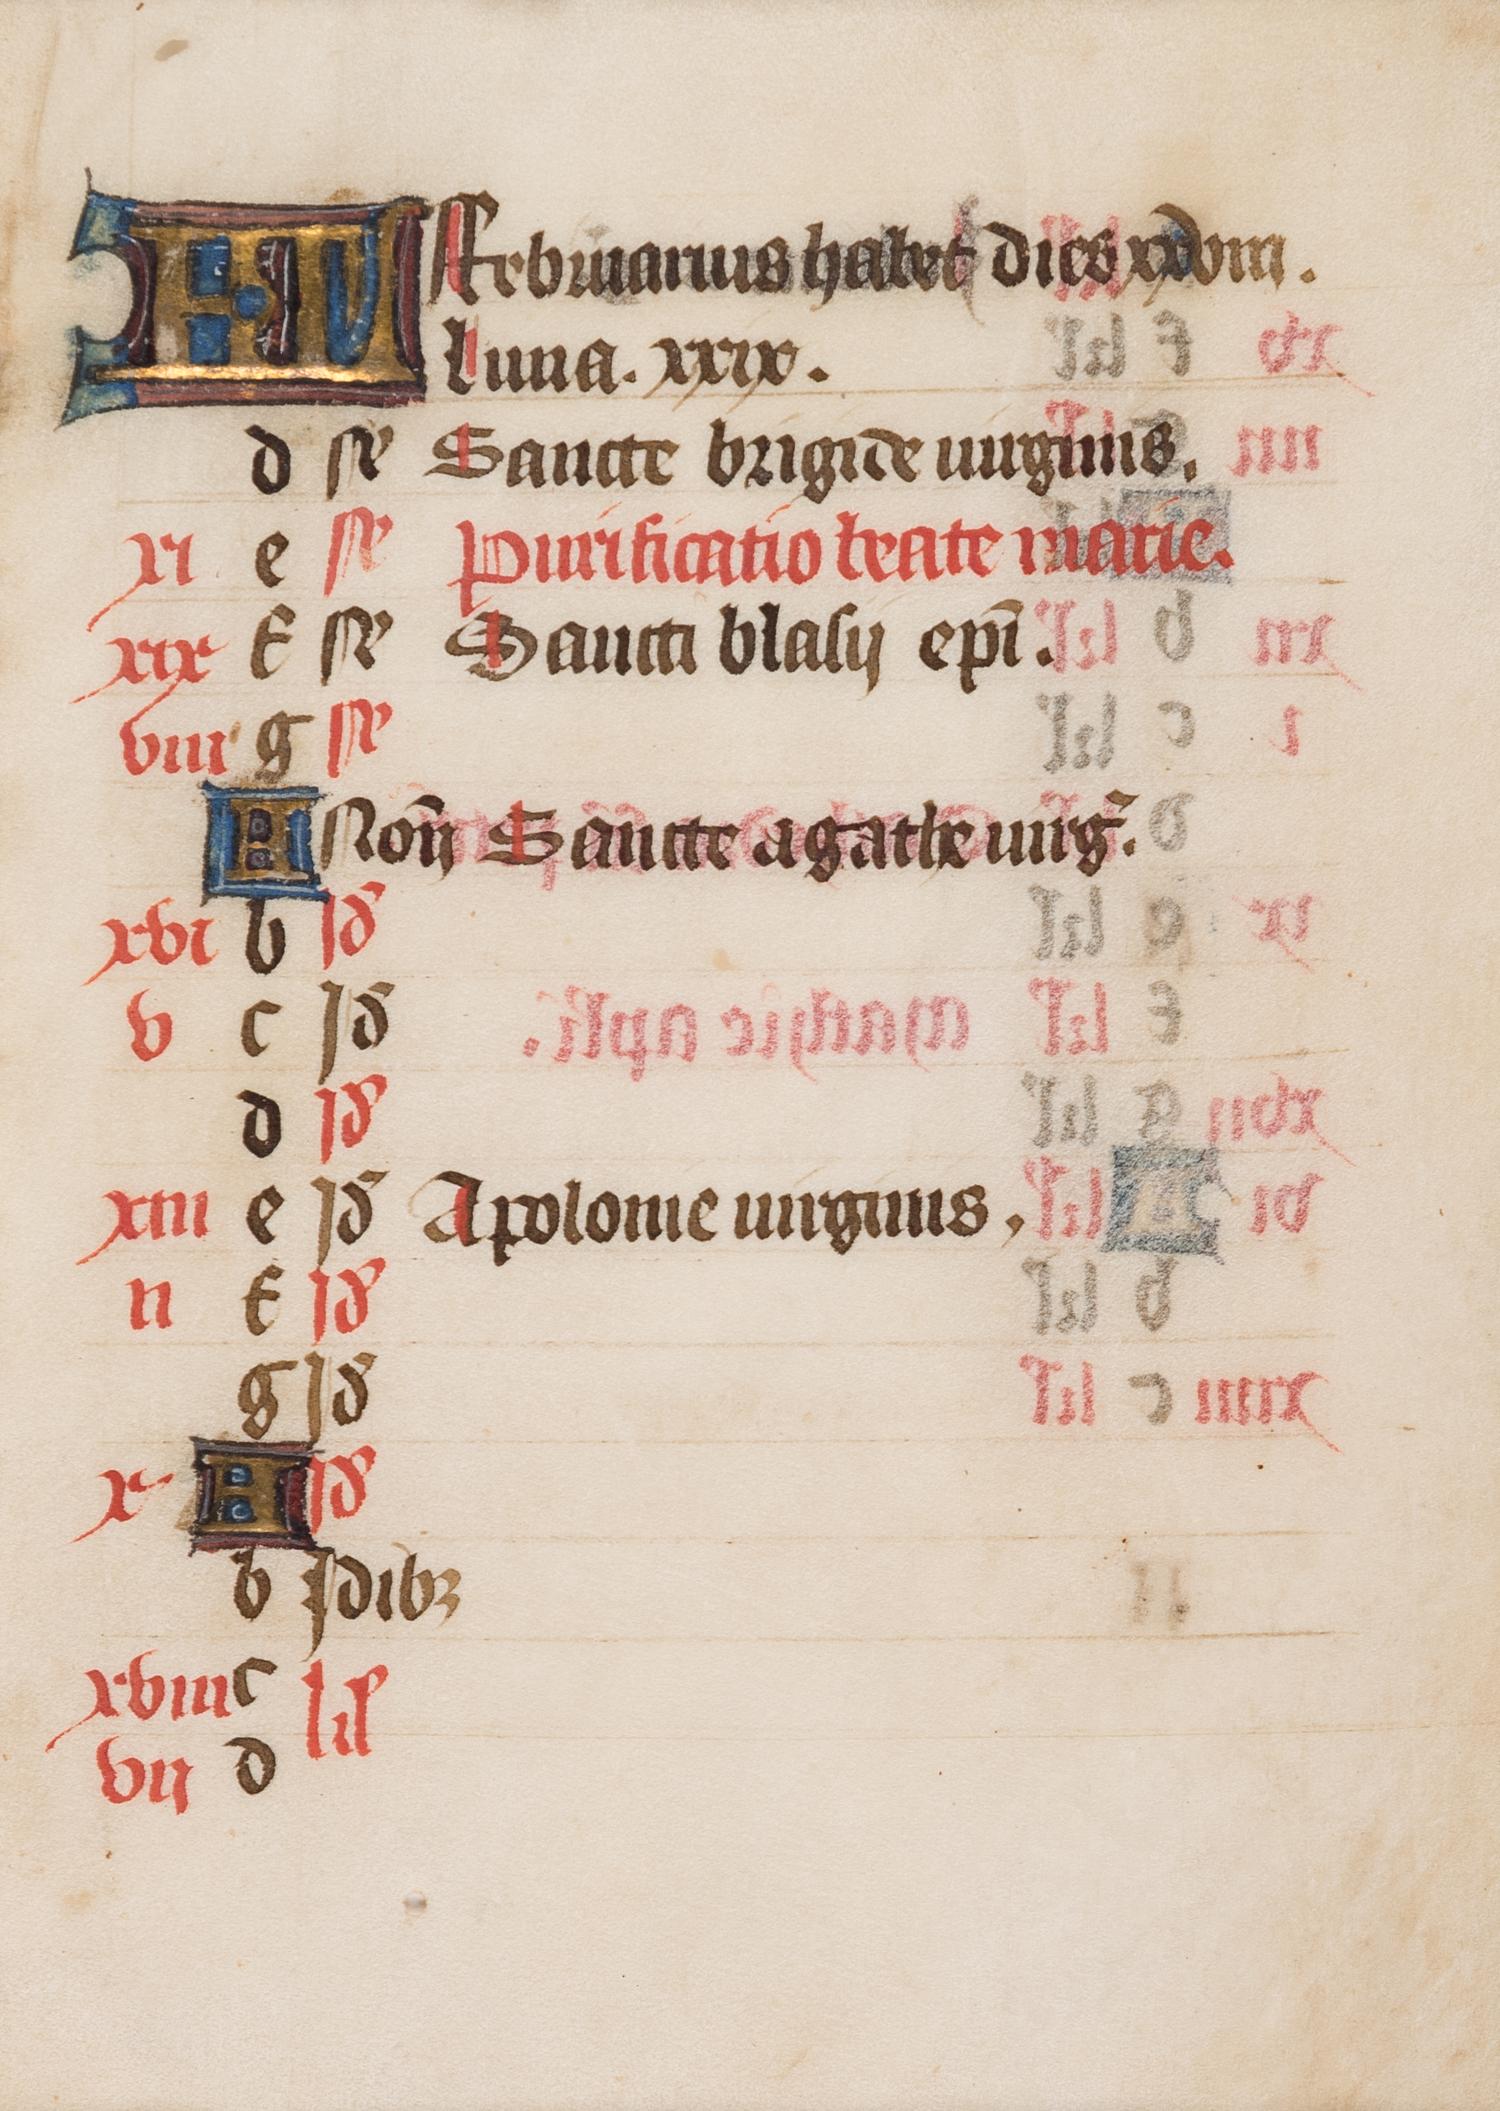 KL Februarius habet dies xxviii.
Luna. xxix.
d ne Sancte brigide uirginis.
xi e ne Purificatio beate marie.
xix f ne Sancti blasij epi.
viii g ne
A Non Sancte agathe uirg.
xvi b Id
v c Id
d Id
xiii e Id Apolonie uirginis,
ii f Id
g Id
x A Id
b Idibz
xviii c kl
vii d